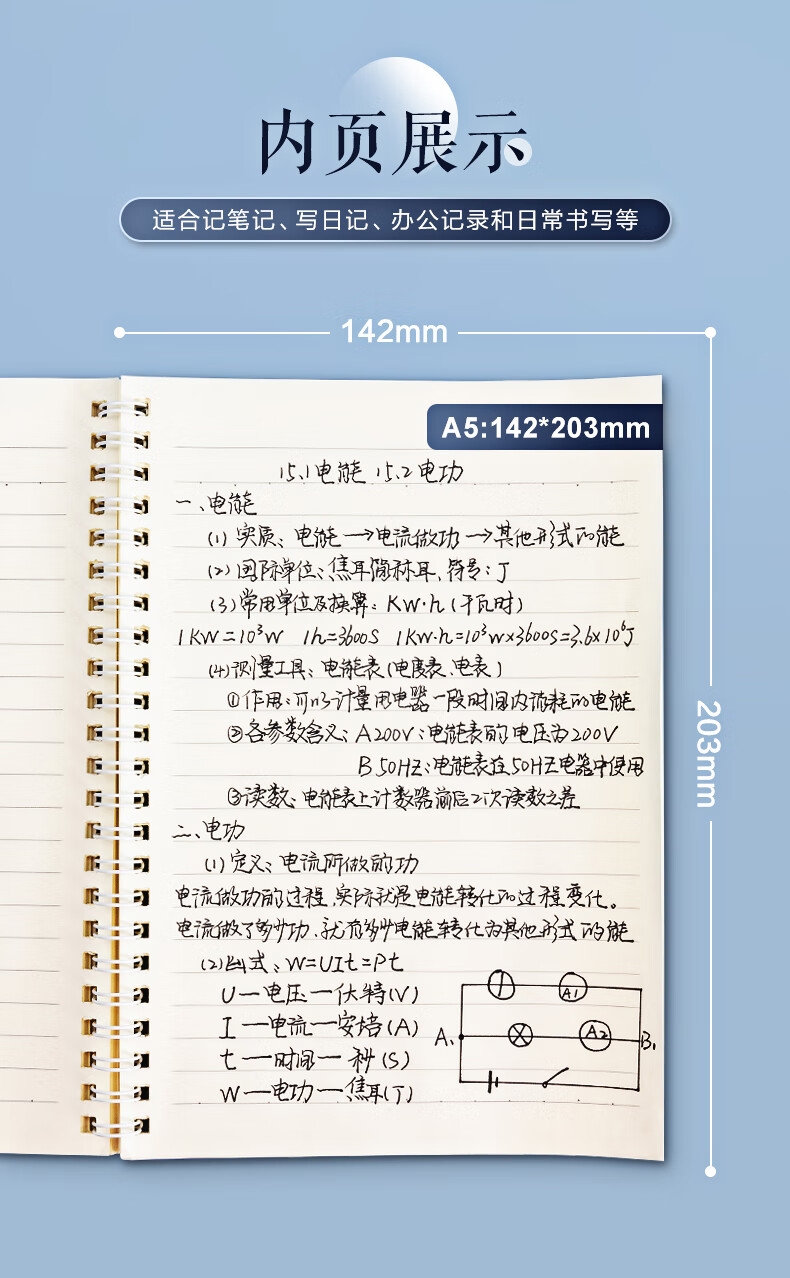 内页展示
适合记笔记、写日记、办公记录和日常书写等
142mm
A5:142*203mm
203mm
15.1电能 15.2电功
一、电能
(1) 实质：电能→电流做功→其他形式的能
(2) 国际单位：焦耳简称耳，符号：J
(3) 常用单位及换算：KW·h (千瓦时)
1KW=10³W 1h=3600S 1KW·h=10³W×3600S=3.6×10⁶J
(4) 测量工具：电能表(电度表、电表)
①作用：可以计量用电器一段时间内消耗的电能
②各参数含义：A 200V：电能表的电压为200V
B 50HZ：电能表在50HZ电器中使用
③读数：电能表上计数器前后2次读数之差
二、电功
(1) 定义：电流所做的功
电流做功的过程，实际就是电能转化的过程变化。
电流做了多少功，就有多少电能转化为其他形式的能
(2) 公式：W=UIt=Pt
U—电压—伏特(V)
I—电流—安培(A)
t—时间—秒(S)
W—电功—焦耳(J)
A1
A.
A2
B.